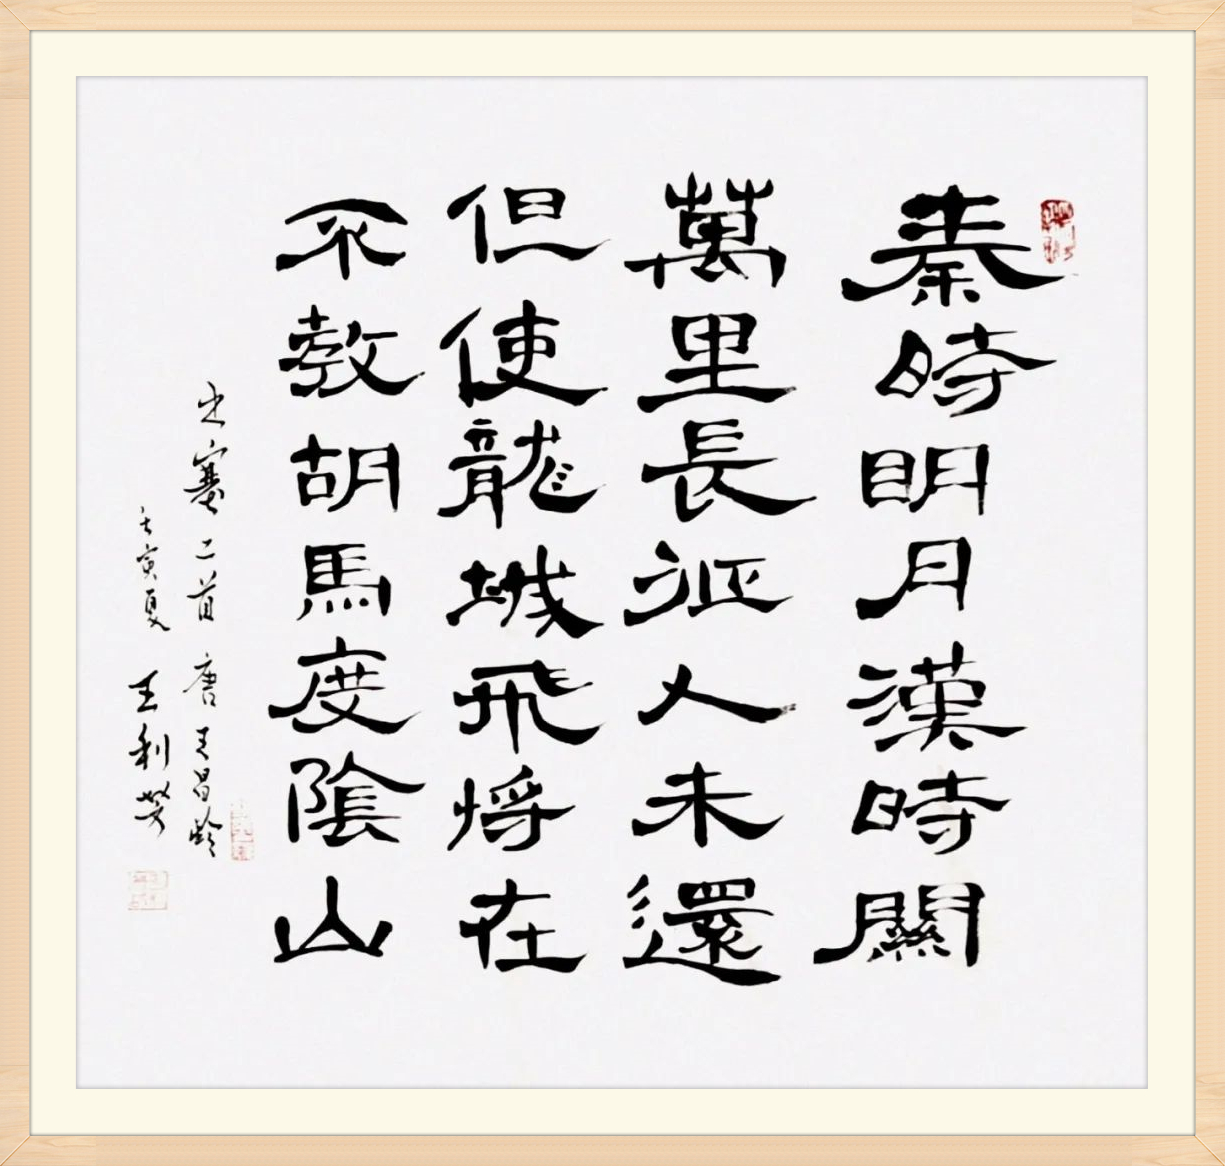 秦時明月漢時關
萬里長征人未還
但使龍城飛将在
不教胡馬度陰山
出塞二首 唐 王昌齡
壬寅夏 王利芳